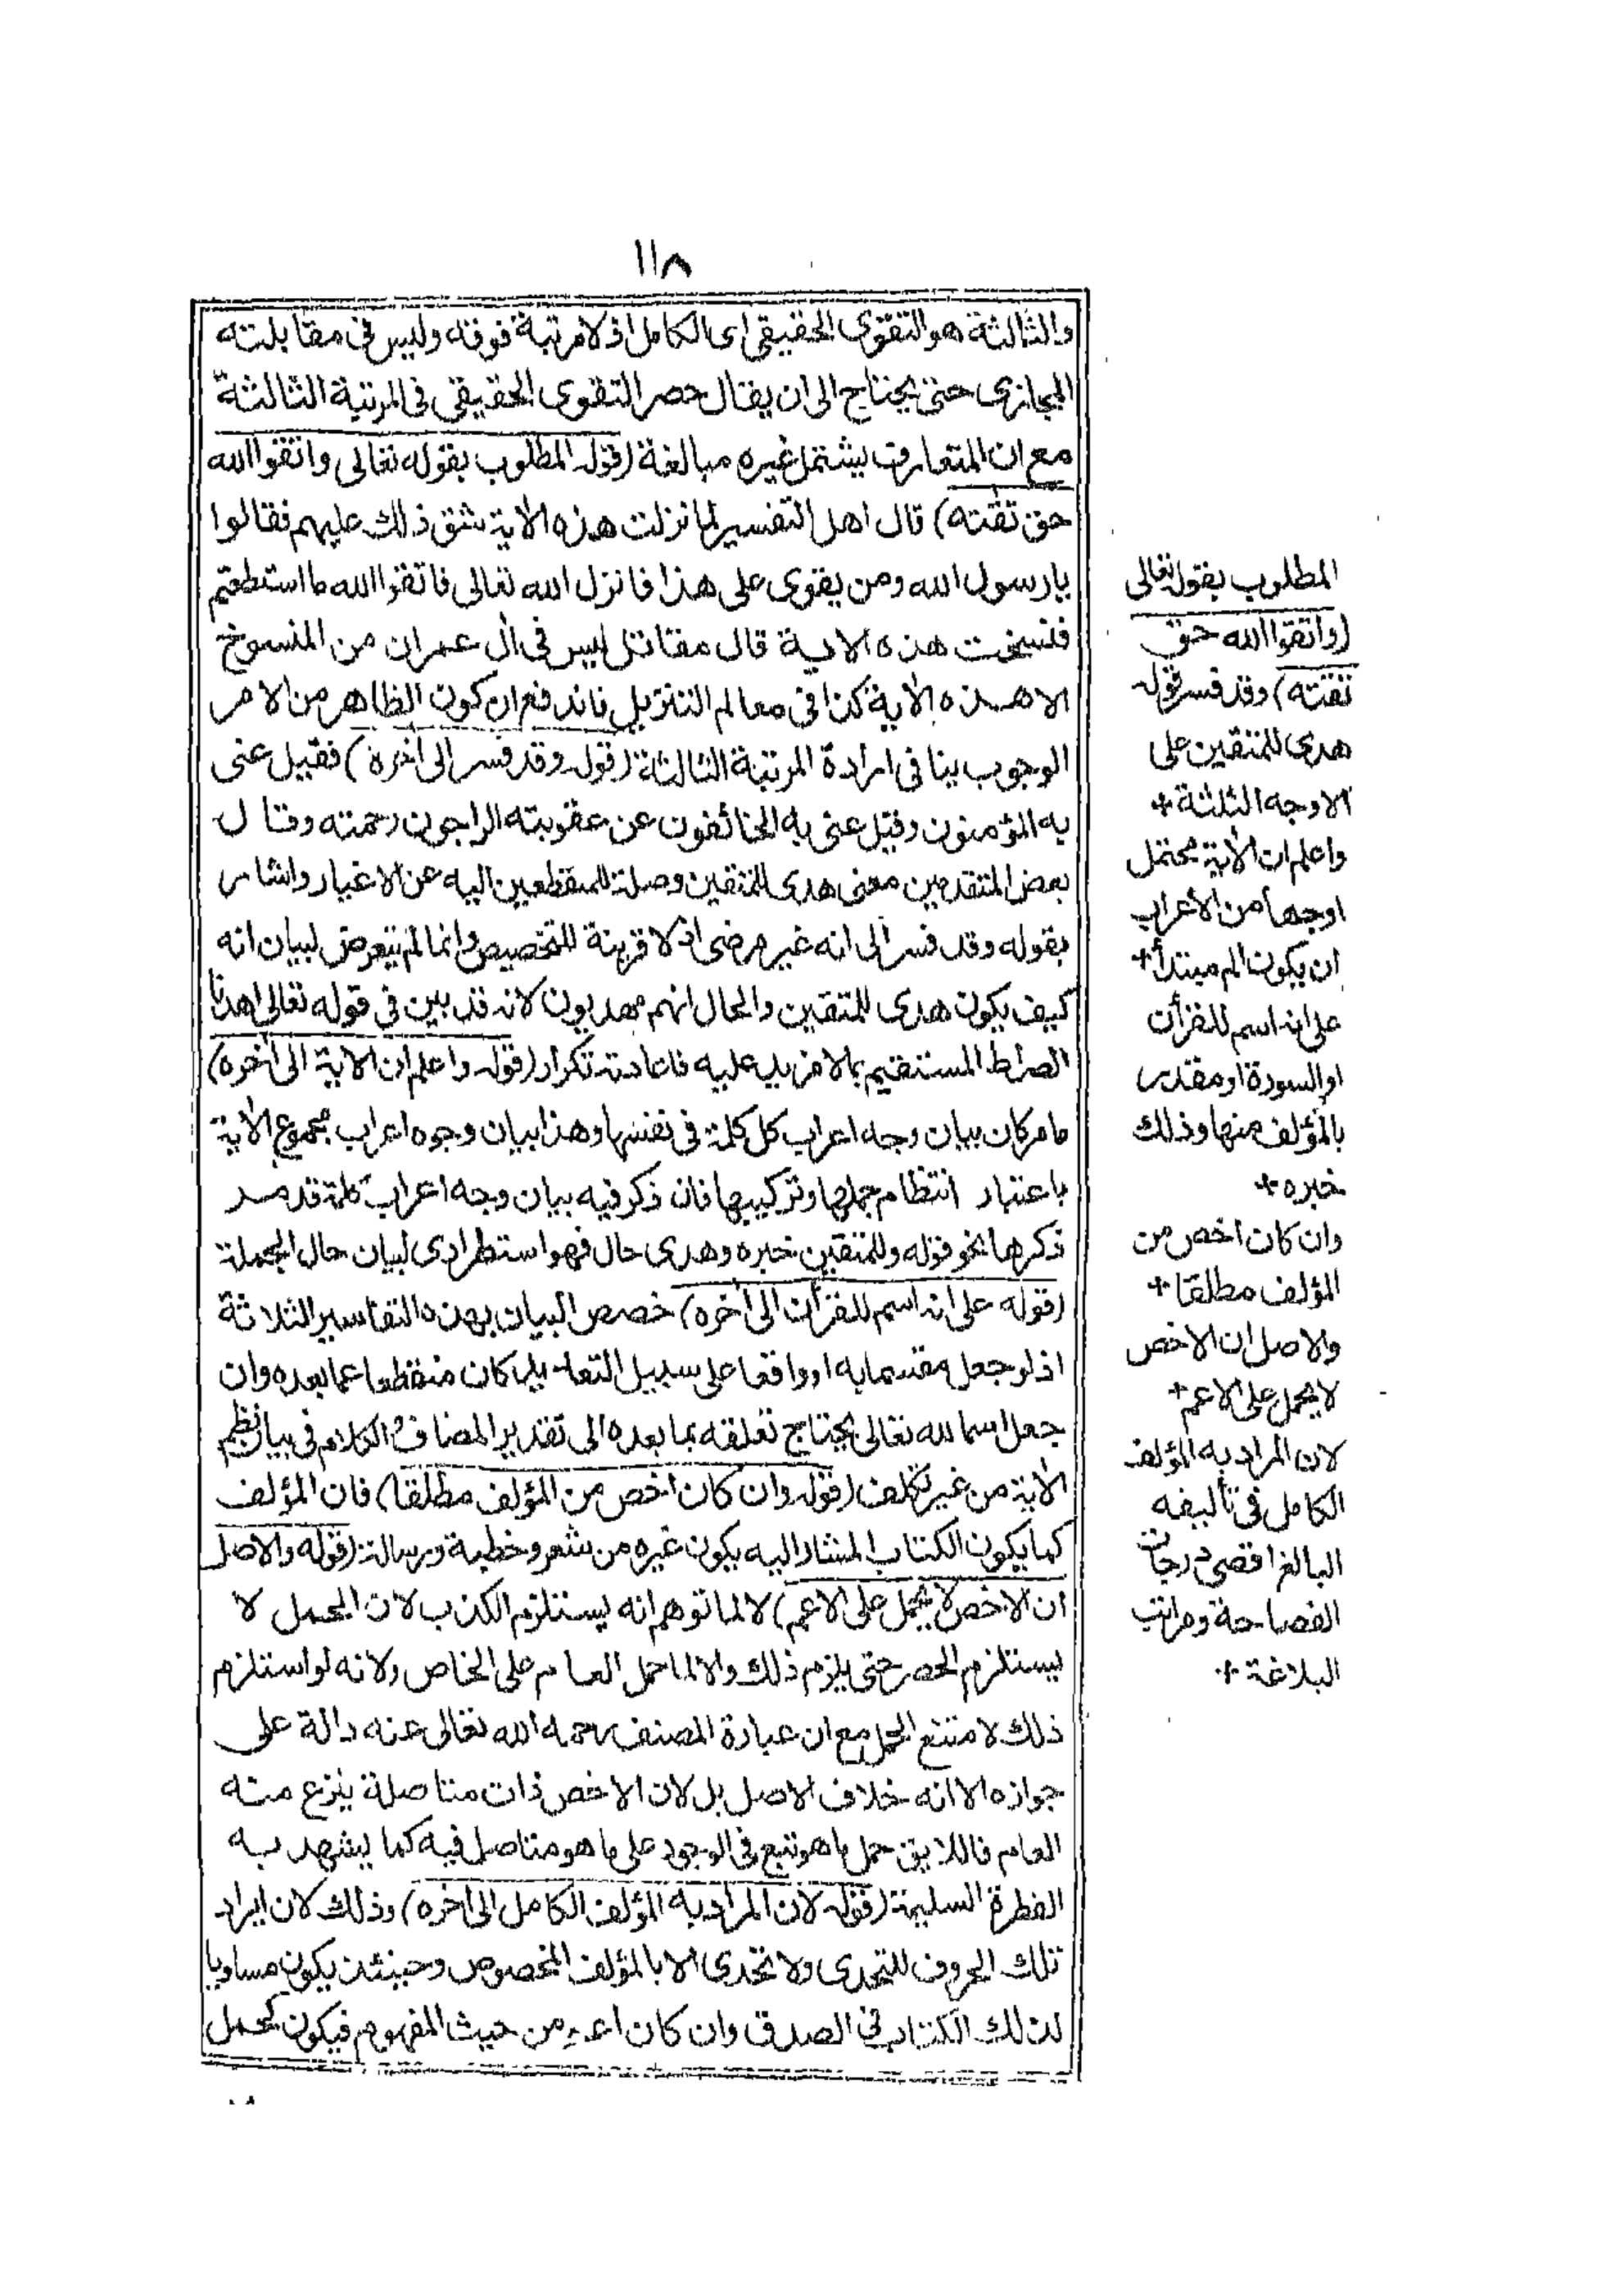 ١١٨
والثالثة هو التقوى الحقيقى اى الكامل اذ لا مرتبة فوقه وليس فى مقابلته
المجازى حتى يحتاج الى ان يقال حصر التقوى الحقيقى فى المرتبة الثالثة
مع ان المتعارف يشتمل غيره مبالغة (قوله المطلوب بقوله تعالى واتقوا الله
حق تقته) قال اهل التفسير لما نزلت هذه الاية شق ذلك عليهم فقالوا
يا رسول الله ومن يقوى على هذا فانزل الله تعالى فاتقوا الله ما استطعتم
فنسخت هذه الاية قال مقاتل ليس فى أل عمران من المنسوخ
الا هذه الاية كذا فى معالم التنزيل فاندفع ان كون الظاهر من الامر
الوجوب ينافى ارادة المرتبة الثالثة (قوله وقد فسر الى اخره) فقيل عنى
به المؤمنون وقيل عنى به الخائفون عن عقوبته الراجون رحمته وقال
بعض المتقدمين معنى هدى للمتقين وصلة للمنقطعين اليه عن الاغيار واشار
بقوله وقد فسر الى انه غير مرضى اذ لا قرينة للتخصيص وانما لم يتعرض لبيان انه
كيف يكون هدى للمتقين والحال انهم مهديون لانه قد بين فى قوله تعالى اهدنا
الصراط المستقيم بما لا مزيد عليه فاعادته تكرار (قوله واعلم ان الاية الى أخره)
ما مر كان بيان وجه اعراب كل كلمة فى نفسها وهذا بيان وجوه اعراب مجموع الأية
باعتبار انتظام جملها وتركيبها فان ذكر فيه بيان وجه اعراب كلمة قد مر
ذكرها نحو قوله وللمتقين خبره وهدى حال فهو استطرادى لبيان حال الجملة
(قوله على انه اسم للقرأن الى أخره) خصص البيان بهذه التفاسير الثلاثة
اذ لو جعل مقسما به او واقعا على سبيل التعديد كان منقطعا عما بعده وان
جعل اسما لله تعالى يحتاج تعلقه بما بعده الى تقدير المضاف والكلام فى بيان نظم
الأية من غير تكلف (قوله وان كان اخص من المؤلف مطلقا) فان المؤلف
كما يكون الكتاب المشار اليه يكون غيره من شعر وخطبة ورسالة (قوله والاصل
ان الاخص لا يحمل على الاعم) لا لما توهم انه يستلزم الكذب لان الحمل لا
يستلزم الحصر حتى يلزم ذلك والا لما حمل العام على الخاص ولانه لو استلزم
ذلك لامتنع الحمل مع ان عبارة المصنف رحمه الله تعالى عنه دالة على
جوازه الا انه خلاف الاصل بل لان الاخص ذات متاصلة ينزع منه
العام فاللايق حمل ما هو تبع فى الوجود على ما هو متاصل فيه كما يشهد به
الفطرة السليمة (قوله لان المراد به المؤلف الكامل الى أخره) وذلك لان ايراد
تلك الحروف للتحدى ولا تحدى الا بالمؤلف المخصوص وحينئذ يكون مساويا
لذلك الكتاب فى الصدق وان كان اعم من حيث المفهوم فيكون كحمل
المطلوب بقوله تعالى
(واتقوا الله حق
تقته) وقد فسر قوله
هدى للمتقين على
الاوجه الثلثة +
واعلم ان الأية محتمل
اوجها من الاعراب
ان يكون الم مبتدأ +
على انه اسم للقرأن
او السورة او مقدر
بالمؤلف منها وذلك
خبره +
وان كان اخص من
المؤلف مطلقا +
والاصل ان الاخص
لا يحمل على الاعم +
لان المراد به المؤلف
الكامل فى تأليفه
البالغ اقصى درجات
الفصاحة ومراتب
البلاغة +